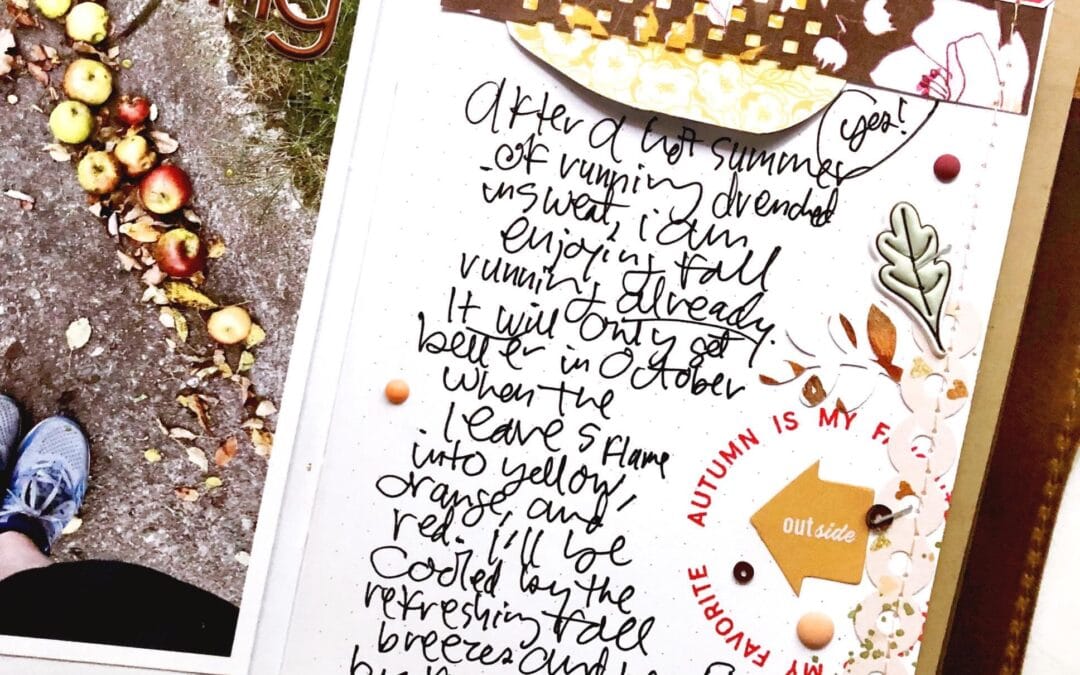 ng
yes!
after a hot summer
of running drenched
in sweat, i am
enjoying fall
running already.
It will only get
better in October
when the
leaves flame
into yellow,
orange, and
red. I'll be
cooled by the
refreshing fall
breezes and
AUTUMN IS MY FA
outside
MY FAVORITE
MY